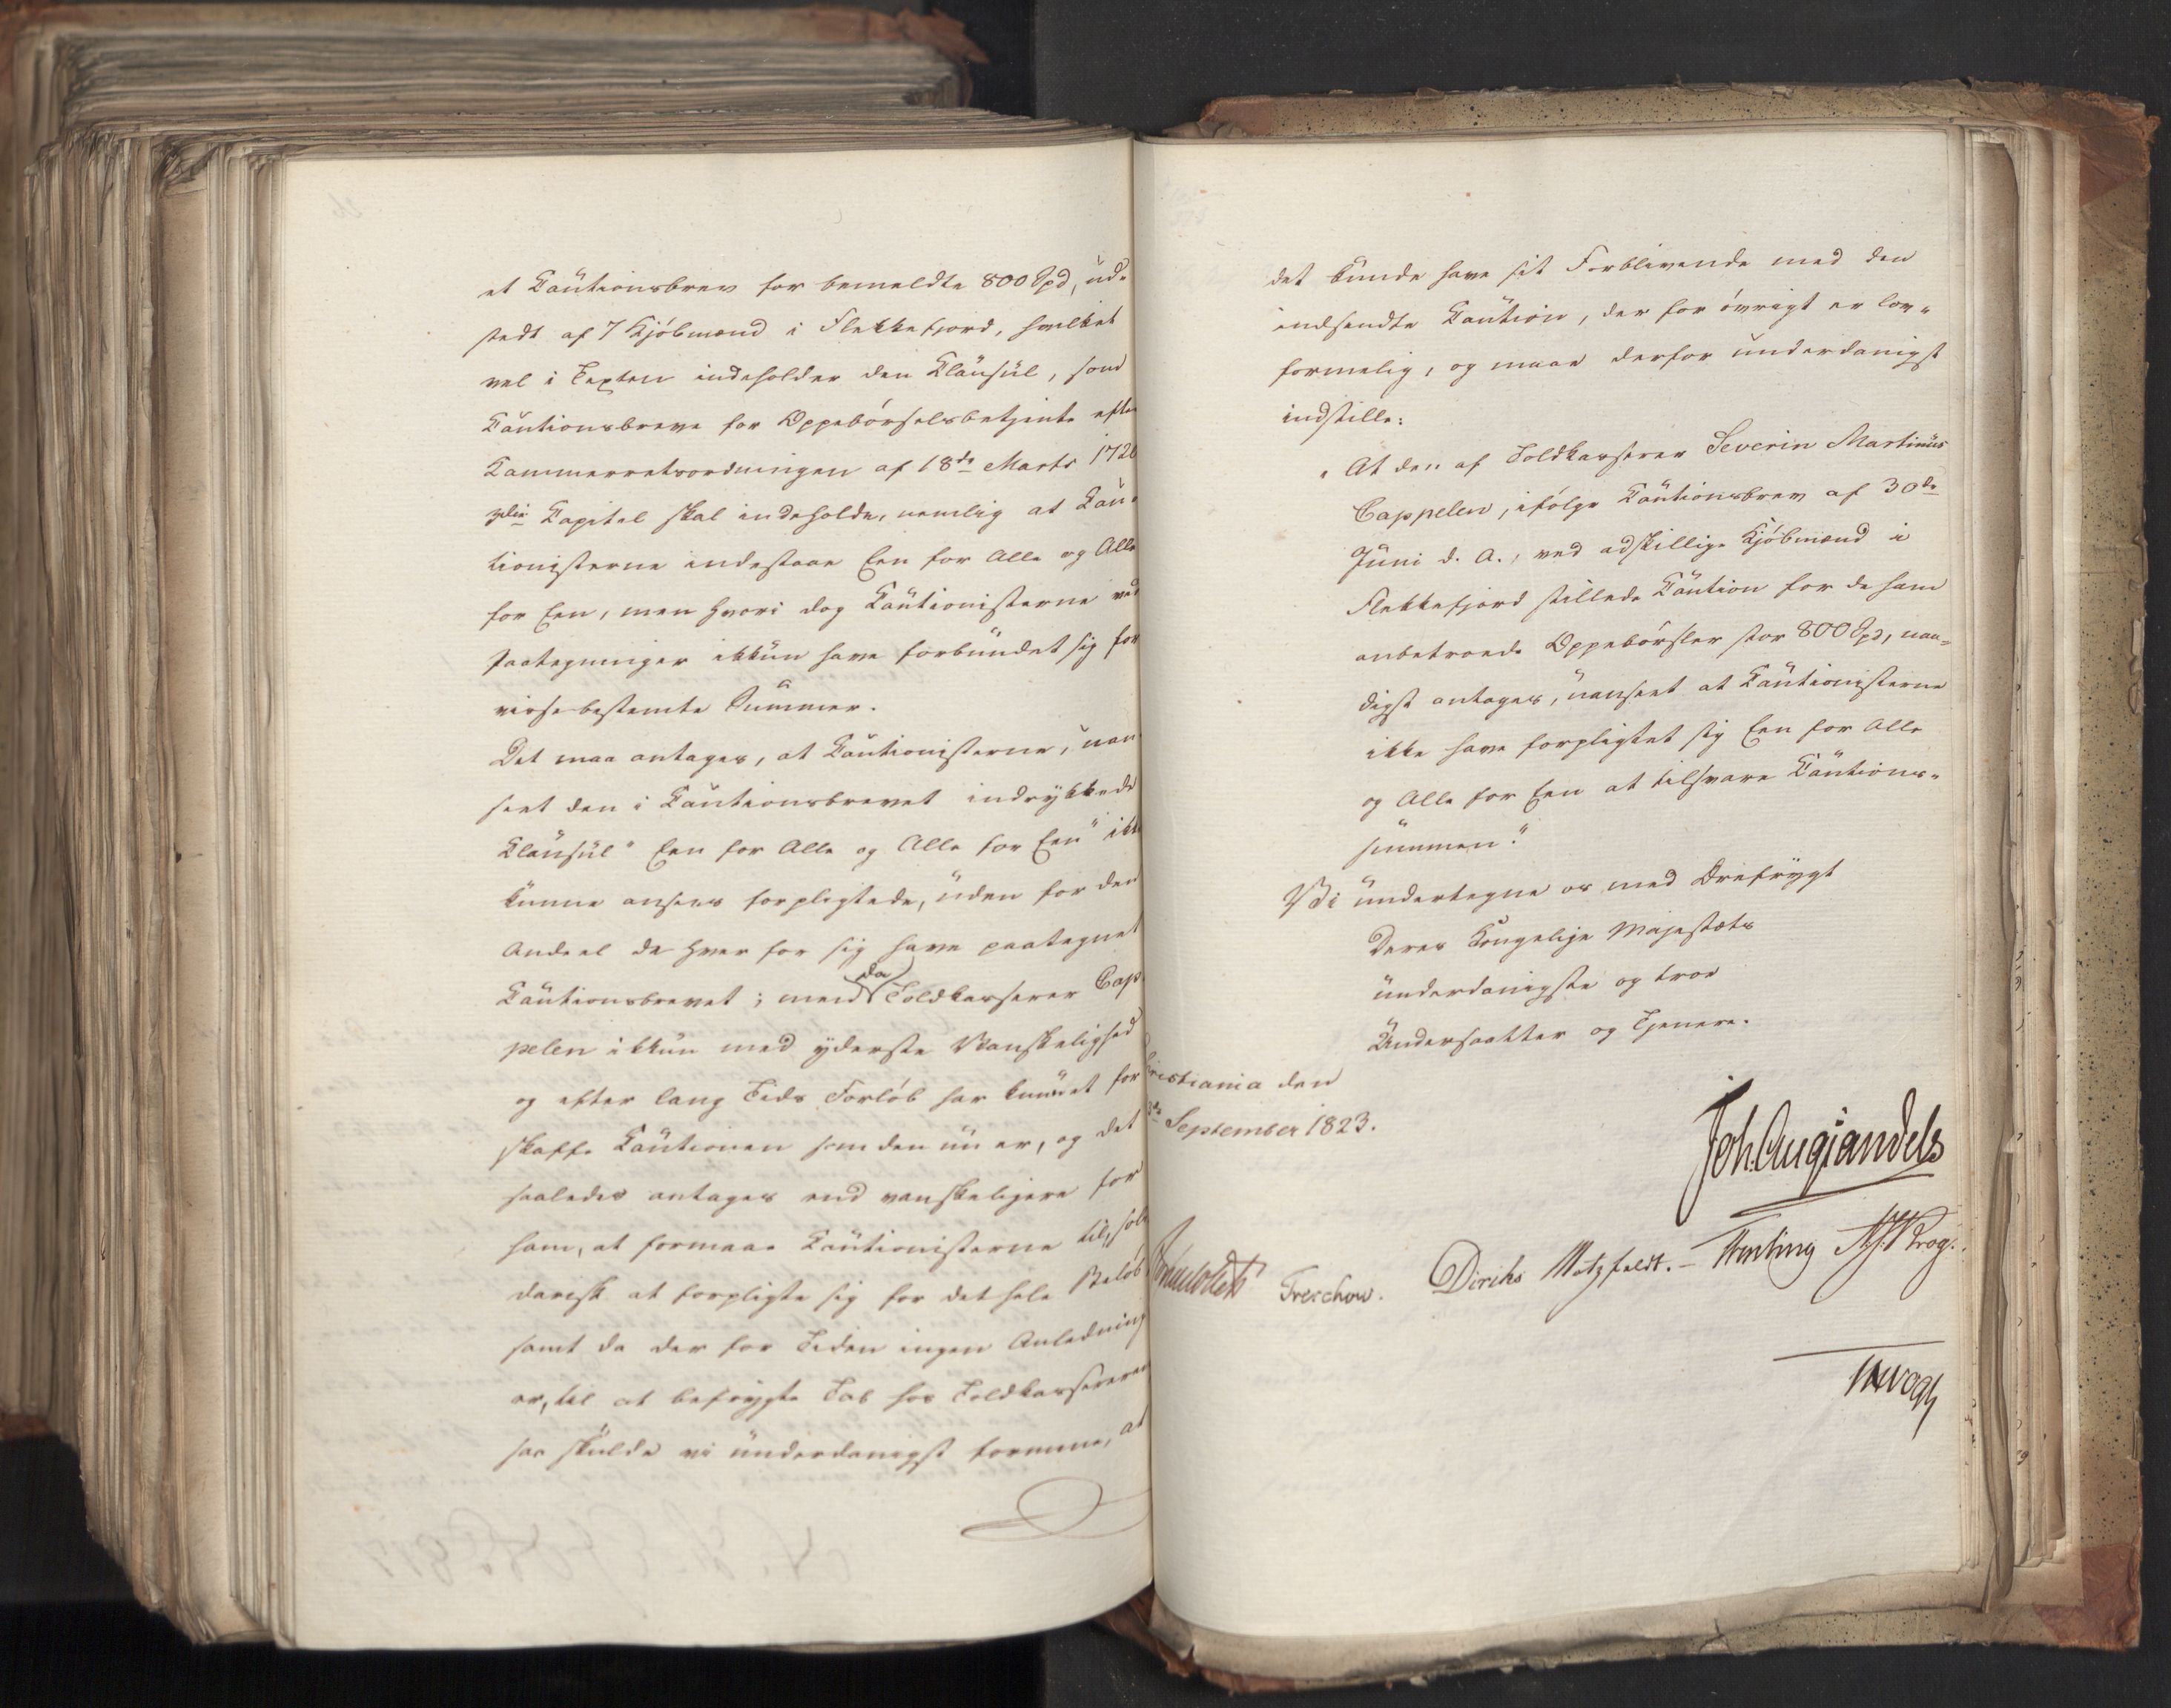 et Cautionsbrev for bemeldte 800 Spd, ud-
stedt af 7 Kjöbmænd i Flekkefjord, hvilket
vel i Texten indeholder den Clausul, som
Cautionsbreve for Oppebörselsbetjente efter
Kammerretsordningen af 18de Marts 1720
3die Capitel skal indeholde, nemlig at Cau-
tionisterne indestaae Een for Alle og Alle
for Een, men hvori dog Cautionisterne ved
Paategninger ikkun have forbundet sig for
visse bestemte Summer.
Det maa antages, at Cautionisterne, uan-
seet den i Cautionsbrevet indrykkede
Clausul "Een for Alle og Alle for Een" ikke
kunne ansees forpligtede, uden for den
Andeel de hver for sig have paategnet
Cautionsbrevet; men da Toldkasserer Cap-
pelen ikkun med yderste Vanskelighed
og efter lang Tids Forlöb har kunnet for
skaffe Cautionen som den nu er, og det
saaledes antages end vanskeligere for
ham, at formaae Cautionisterne til, soli-
darisk at forpligte sig for det hele Belöb
samt da der for Tiden ingen Anledning
er, til at befrygte Tab hos Toldkassereren
saa skulde vi underdanigst formene, at
det kunde have sit Forblivende med den
indsendte Caution, der for övrigt er lov-
formelig, og maae derfor underdanigst
indstille:
"At den af Toldkasserer Severin Martinus
Cappelen, ifölge Cautionsbrev af 30de
Juni d. A., ved adskillige Kjöbmænd i
Flekkefjord stillede Caution for de ham
anbetroede Oppebörsler stor 800 Spd, naa-
digst antages, uanseet at Cautionisterne
ikke have forpligtet sig Een for Alle
og Alle for Een at tilsvare Cautions-
summen."
Vi undertegne os med Ærefrygt
Deres Kongelige Majestæts
underdanigste og troe
Undersaatter og Tjenere.
Christiania den
September 1823.
Joh. Aug Sandels
Treschow. Diriks Motzfeldt.